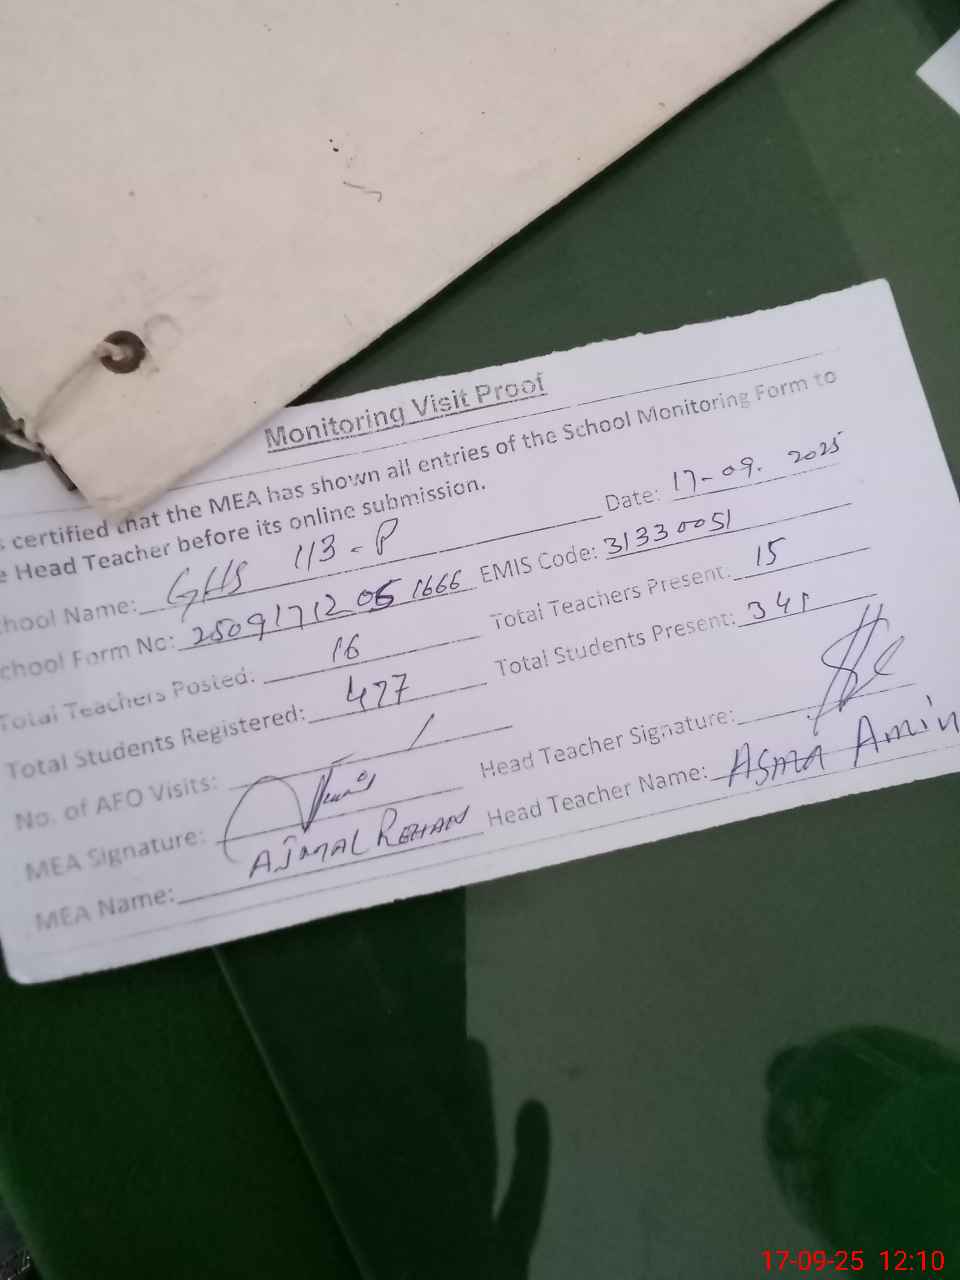 Monitoring Visit Proof
certified that the MEA has shown all entries of the School Monitoring Form to
Head Teacher before its online submission.
Date: 17-09-2025
School Name: GHS 113-P
EMIS Code: 31330051
School Form No: 25091712051666
Total Teachers Present: 15
Total Teachers Posted: 16
Total Students Present: 341
Total Students Registered: 477
No. of AFO Visits: /
Head Teacher Signature:
MEA Signature:
Head Teacher Name: ASMA Amin
MEA Name: AJMAL REHAN
17-09-25 12:10